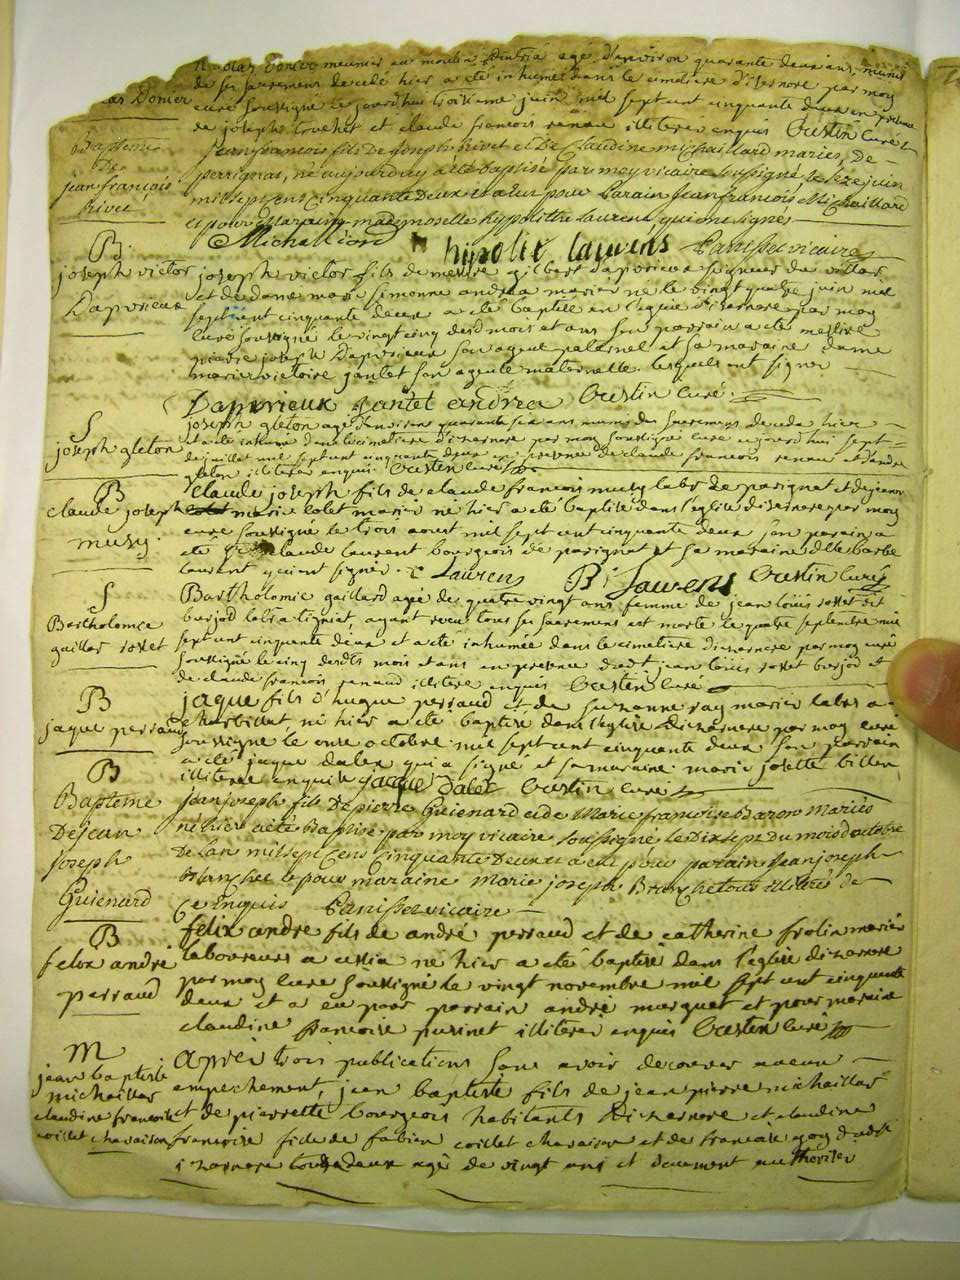 Nicolas Domer meunier au moulin agé d'environ quarante deux ans, munis
de ses sacremens decedé hier a eté inhumé dans le cimetiere d'isernore par moy
as Domer
curé soussigné le jourdhui troisieme juin mil sept cent cinquante deux en presence
de joseph et claude francois renau illiterés enquis Oustin curé
Bapteme
De
jean françois
Rivet
jeanfrancois fils De Joseph Rivet et De Claudine michaillard mariés, de
perrignas, né aujourdhuy a été baptisé par moy vicaire soussigné, le seze juin
mil sept cens cinquante Deux et a eu pour Parain Jeanfrancois Michaillard
et pour Maraine mademoselle hyppolitte Laurens, qui ont signés
Michaillard hipolite laurens Panisset vicaire
B
joseph victor
Daprvieux
joseph victor fils de messire gilbert seigneur du villar
et de dame marie simonne andrea mariés né le vingt quatre juin mil
sept cent cinquante deux a eté baptisé en l'eglise d'isernore par moy
curé soussigné le vingt cinq desd mois et ans son parrain a eté messire
pierre joseph son ayeul paternel et sa maraine dame
marie victoire gantet son ayeule maternelle lesquels ont signés
gantet andrea Oustin curé
S
joseph gleton
joseph gleton agé d'environ quarante six ans munis des sacremens decedé hier
et a eté inhumé dans le cimetiere d'isernore par moy soussigné curé aujourdhui sept
de juillet mil sept cent cinquante deux en presence de claude francois renau et d'andré
gleton illiterés enquis Oustin curé
B
claude joseph
musy
claude joseph fils de claude francois musy labr de perignat et de jeanne
marie colet mariés né hier a eté baptisé dans l'eglise d'isernore par moy
curé soussigné le trois aoust mil sept cent cinquante deux son parain a
eté Sr claude laurent bourgeois de perignat et sa maraine dlle barbe
laurent qui ont signés Laurens B Laurens Oustin curé
S
Bartholomée
gaillar rosset
Bartholomie gaillard agé de quatre vingt ans femme de jean loüis rosset dit
burjod labr a tigniat, ayant receu tous ses sacremens est morte le quatre septembre mil
sept cent cinquante deux et a eté inhumée dans le cimetiere d'isernore par moy curé
soussigné le cinq desdts mois et ans en presence dudt jean loüis rosset burjod et
de claude francois renaud illiterés enquis Oustin curé
B
jaque perraud
jaque fils d'hugue perraud et de suzanne ray mariés labrs a
charbillat né hier a eté baptisé dans l'eglise d'isernore par moy curé
soussigné le onze octobre mil sept cent cinquante deux son parrain
a eté jaque dalex qui a signé et sa maraine marie josette billon
illiterée enquise jacque Dalex Oustin curé
B
Bapteme
De jean
joseph
Guienard
jeanjoseph fils de pierre Guienard et de Marie francoise Baron Mariés
né hier a eté Baptisé par moy vicaire soussigné le Dixsept Du mois d'octobre
De l'an mil sept cens cinquante Deux et a eu pour parain Jeanjoseph
Blanchet et pour maraine Marie joseph Branche tous illiterés de
ce Enquis Panisset vicaire
B
felix andré
perraud
felix andré fils de andré perraud et de catherine frolin mariés
laboureurs a ceissia né hier a eté baptisé dans l'eglise d'isarnore
par moy curé soussigné le vingt novembre mil sept cent cinquante
deux et a eu pour parrain andré marguet et pour maraine
claudine francoise pusinet illiterés enquis Oustin curé
M
jean baptiste
michaillar
claudine francoise
coillet chavaison
après trois publications sans avoir decouvert aucun
empechement, jean baptiste fils de jean pierre michaillar
et de pierrette bourgeois habitants d'izarnore et claudine
francoise fille de fabien coillet chavaison et de francoise
izarnore tous deux agé de vingt ans et deuement authoriser